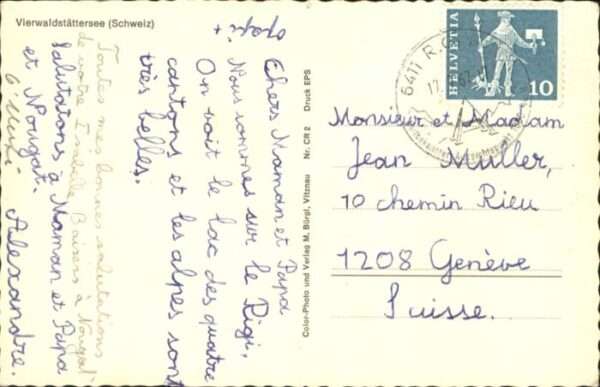 Vierwaldstättersee (Schweiz)
Chers Maman et Papa
Nous sommes sur le Rigi,
On voit le lac des quatre
cantons et les alpes sont
très belles.
Toutes mes bonnes salutations
de votre Isabelle Baisers à Nougat
Salutations à Maman et Papa
et Nougat.
Alexandre.
Color-Photo und Verlag M. Bürgi, Vitznau Nr. CR 2 Druck EPS
HELVETIA
10
6411 R
Monsieur et Madam
Jean Muller,
10 chemin Rieu
1208 Genève
Suisse.